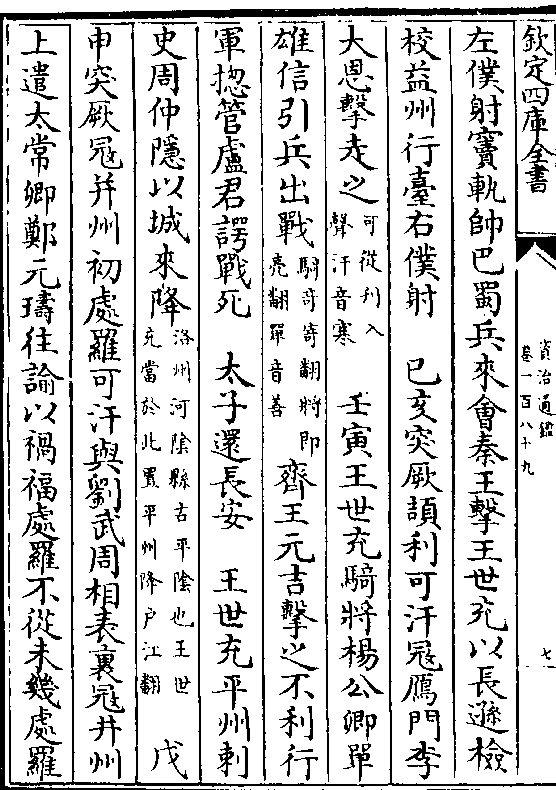 欽定四庫全書
資治通鑑
卷一百八十九
七
左僕射竇軌帥巴蜀兵來會秦王擊王世充以長遜檢
校益州行臺右僕射　已亥突厥頡利可汗冦鴈門李
大恩擊走之可從刋入聲汗音寒　壬寅王世充騎將楊公卿單
雄信引兵出戰騎奇寄翻將即亮翻單音善　齊王元吉擊之不利行
軍揔管盧君諤戰死　太子還長安　王世充平州刺
史周仲隱以城來降洛州河陰縣古平陰也王世充當於此置平州降户江翻　戊
申突厥冦并州初處羅可汗與劉武周相表裏冦并州
上遣太常卿鄭元璹往諭以禍福處羅不從未幾處羅